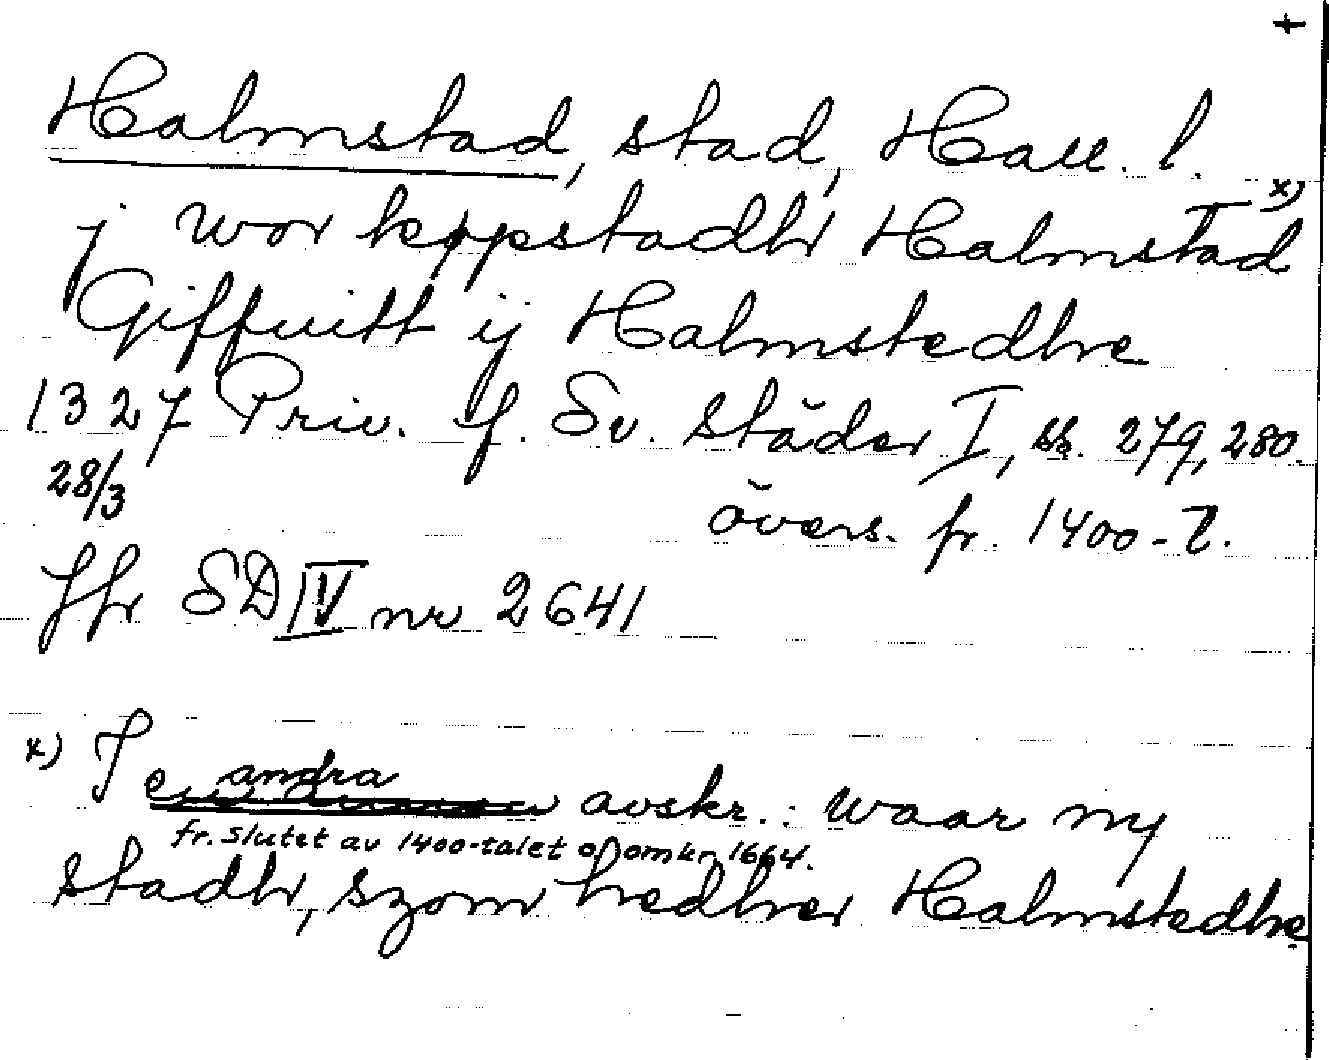 +
Halmstad, stad, Hall. l.
j wor køpstadhr Halmstad x)
Giffuitt ij Halmstedhe
1327 Priv. f. Sv. städer I, ss. 279, 280.
28/3 övers. fr. 1400-t.
Jfr SD IV nr 2641
x) I andra avskr.: waar ny
fr. slutet av 1400-talet o. omkr. 1664.
stadhr, szom hedher Halmstedhe